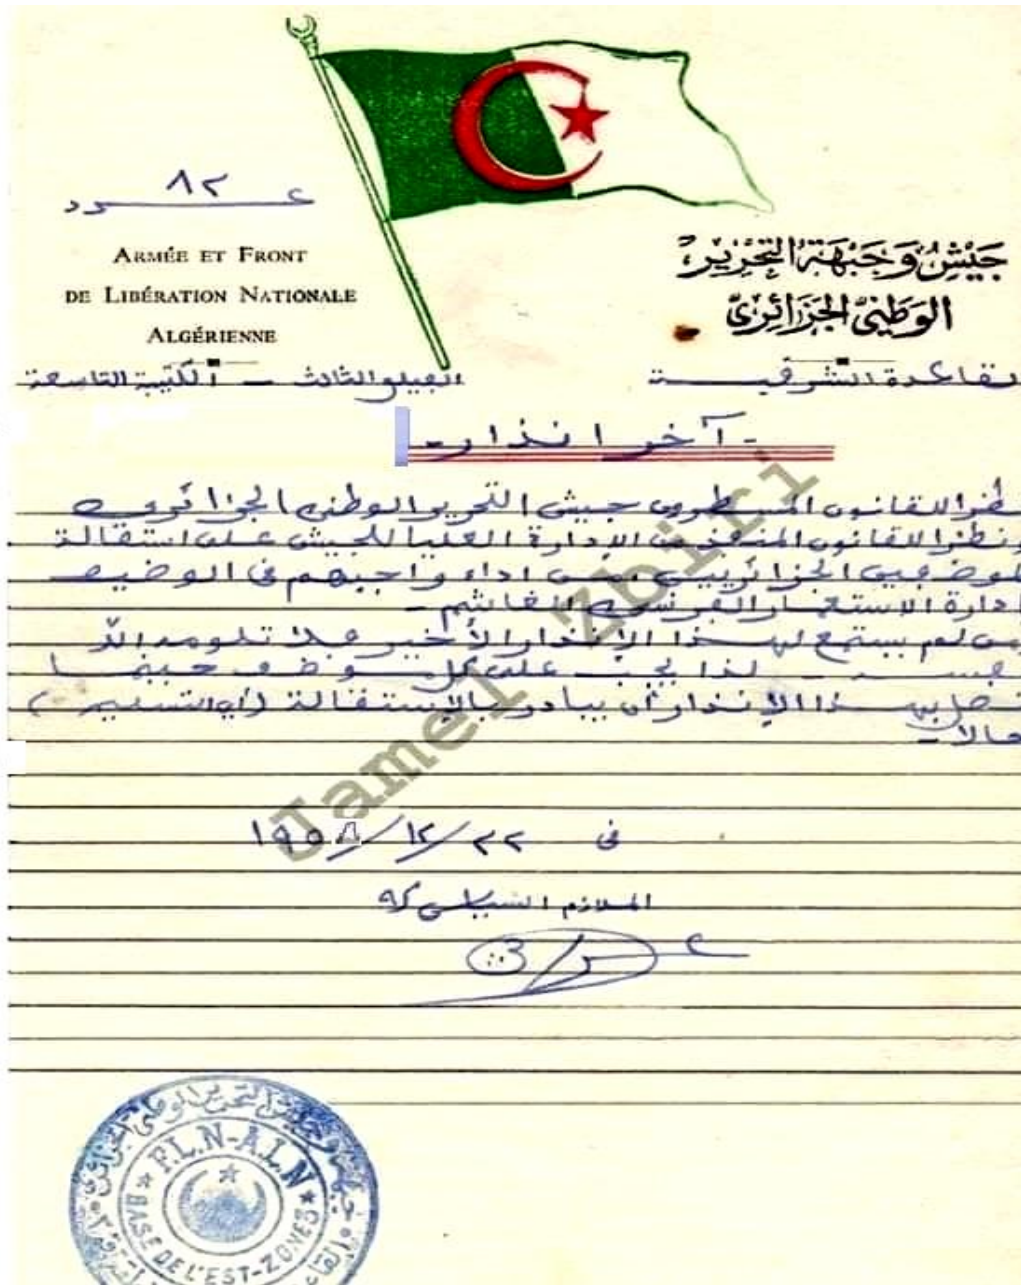 عدد ٨٢
ARMÉE ET FRONT
DE LIBÉRATION NATIONALE
ALGÉRIENNE
جَيْشُ وَجَبْهَةُ التَّحْرِيْرِ
الوَطَنِيِّ الجَزَائِرِيِّ
لقاعدة الشرقية
الفيلق الثالث - الكتيبة التاسعة
- آخر إنذار -
نظرا للقانون المسطر من جيش التحرير الوطني الجزائري
ونظرا للقانون من الإدارة العليا للجيش على استقالة
الجزائريين من اداء واجبهم في الوضيف
إدارة الاستعمار الفرنسي الغاشم -
من لم يستمع لهذا الإنذار الأخير فلا تلومه الا
نفسه - لذا يجب على كل موضف حينما
تصل بهذا الإنذار أن يبادر بالإستقالة (أي التسليم)
حالا -
في ٢٢/١٢/١٩٥٨
الملازم السياسي
Jamel Zbiri
جبهة وجيش التحرير الوطني الجزائري
F.L.N-A.L.N
BASE DE L'EST-ZONES